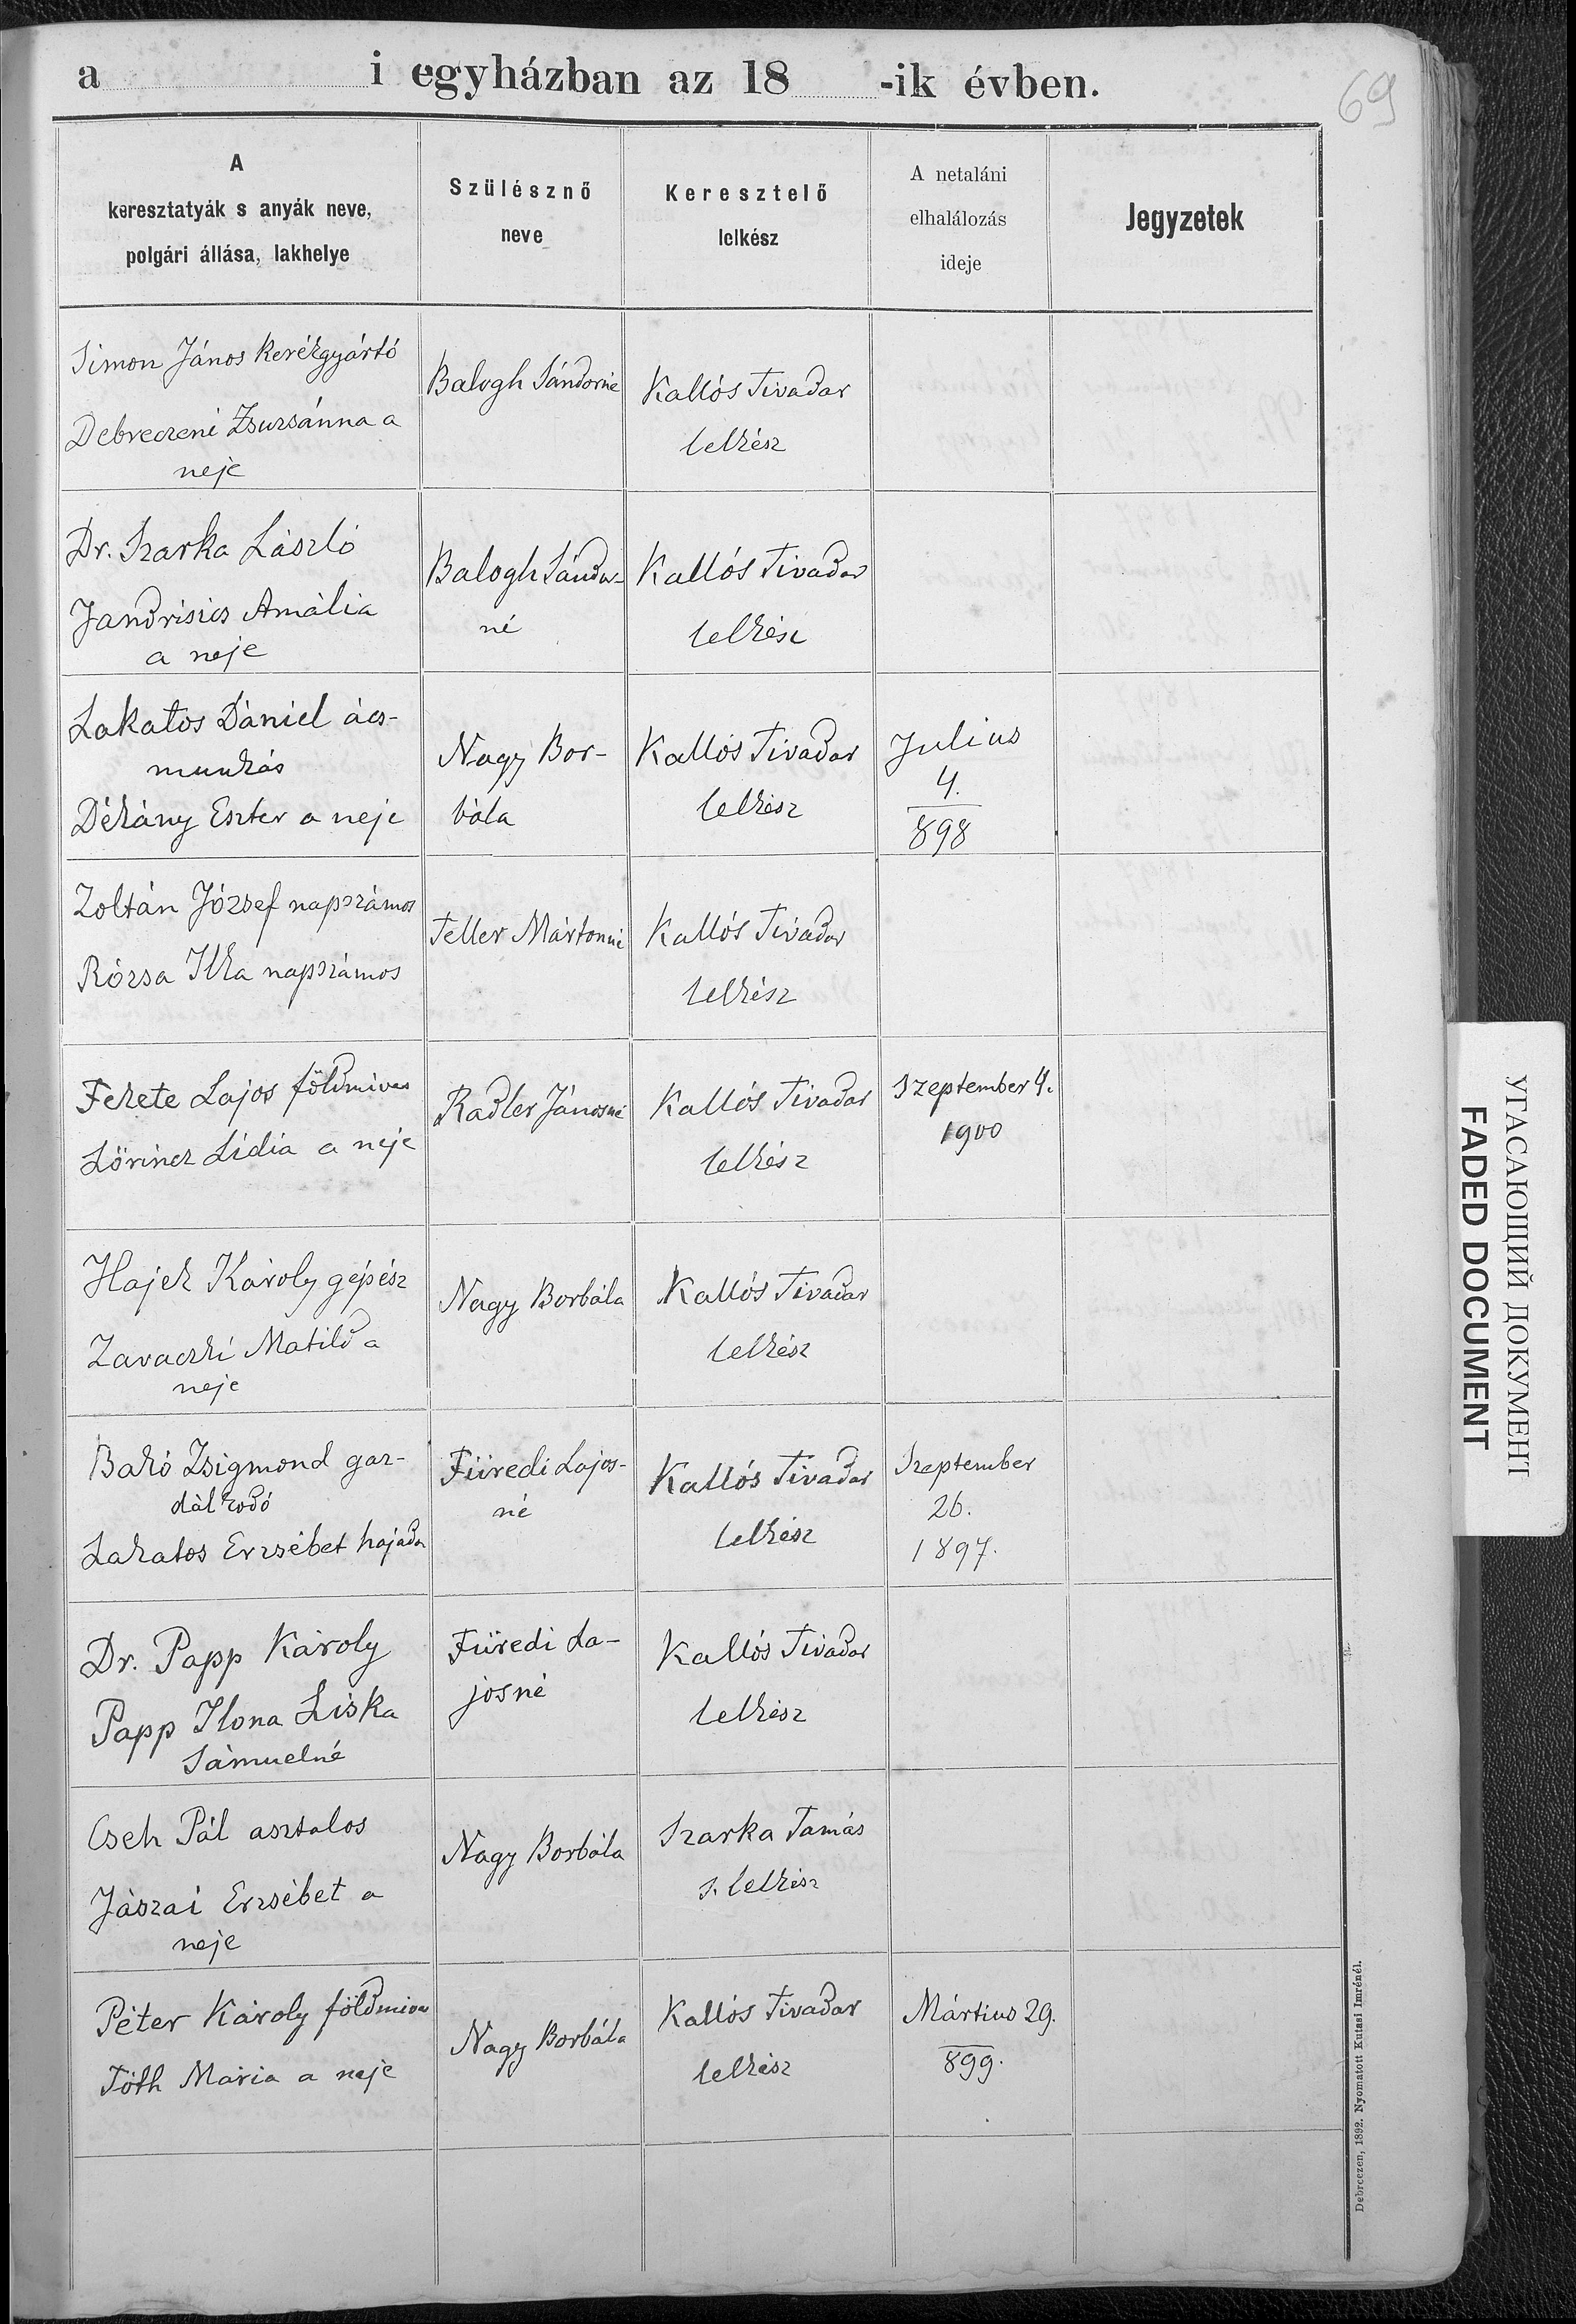 a i egyházban az 18 -ik évben.
69
A
keresztatyák s anyák neve,
polgári állása, lakhelye
Szülésznő
neve
Keresztelő
lelkész
A netaláni
elhalálozás
ideje
Jegyzetek
Simon János kerékgyártó
Debreczeni Zsuzsánna a
neje
Balogh Sándorné
Kallós Tivadar
lelkész
Dr. Szarka László
Jandrisics Amália
a neje
Balogh Sándor-
né
Kallós Tivadar
lelkész
Lakatos Dániel ács-
munkás
Dékány Eszter a neje
Nagy Bor-
bála
Kallós Tivadar
lelkész
Julius
4.
898
Zoltán József napszámos
Rózsa Ilka napszámos
Teller Mártonné
Kallós Tivadar
lelkész
Fekete Lajos földmives
Lőrincz Lidia a neje
Radler Jánosné
Kallós Tivadar
lelkész
Szeptember 4.
1900
Hajek Károly gépész
Zavaczki Matild a
neje
Nagy Borbála
Kallós Tivadar
lelkész
Bakó Zsigmond gaz-
dálkodó
Lakatos Erzsébet hajadon
Füredi Lajos-
né
Kallós Tivadar
lelkész
Szeptember
26.
1897.
Dr. Papp Károly
Papp Ilona Liska
Sámuelné
Füredi La-
josné
Kallós Tivadar
lelkész
Cseh Pál asztalos
Jászai Erzsébet a
neje
Nagy Borbála
Szarka Tamás
s. lelkész
Péter Károly földmives
Tóth Mária a neje
Nagy Borbála
Kallós Tivadar
lelkész
Mártius 29.
899.
Debreczen, 1892. Nyomatott Kutasi Imrénél.
УГАСАЮЩИЙ ДОКУМЕНТ
FADED DOCUMENT